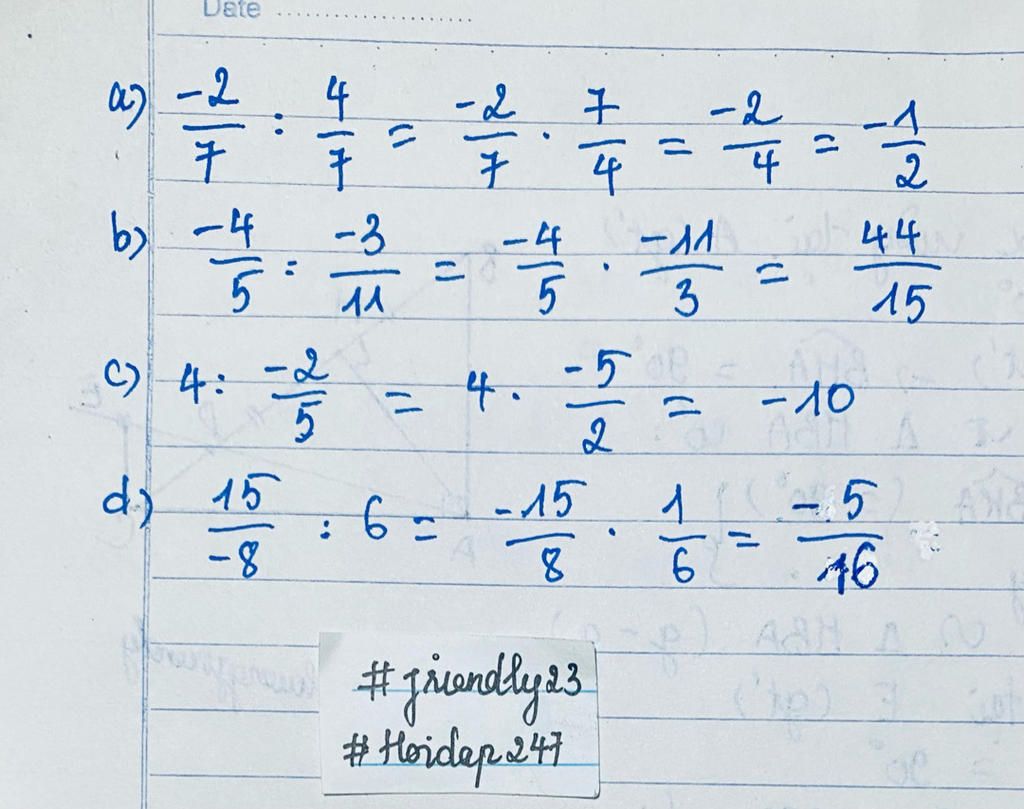 Date ....................
a) -2/7 : 4/7 = -2/7 . 7/4 = -2/4 = -1/2
b) -4/5 : -3/11 = -4/5 . -11/3 = 44/15
c) 4 : -2/5 = 4 . -5/2 = -10
d) 15/-8 : 6 = -15/8 . 1/6 = -5/16
# friendly23
# Hoidap247